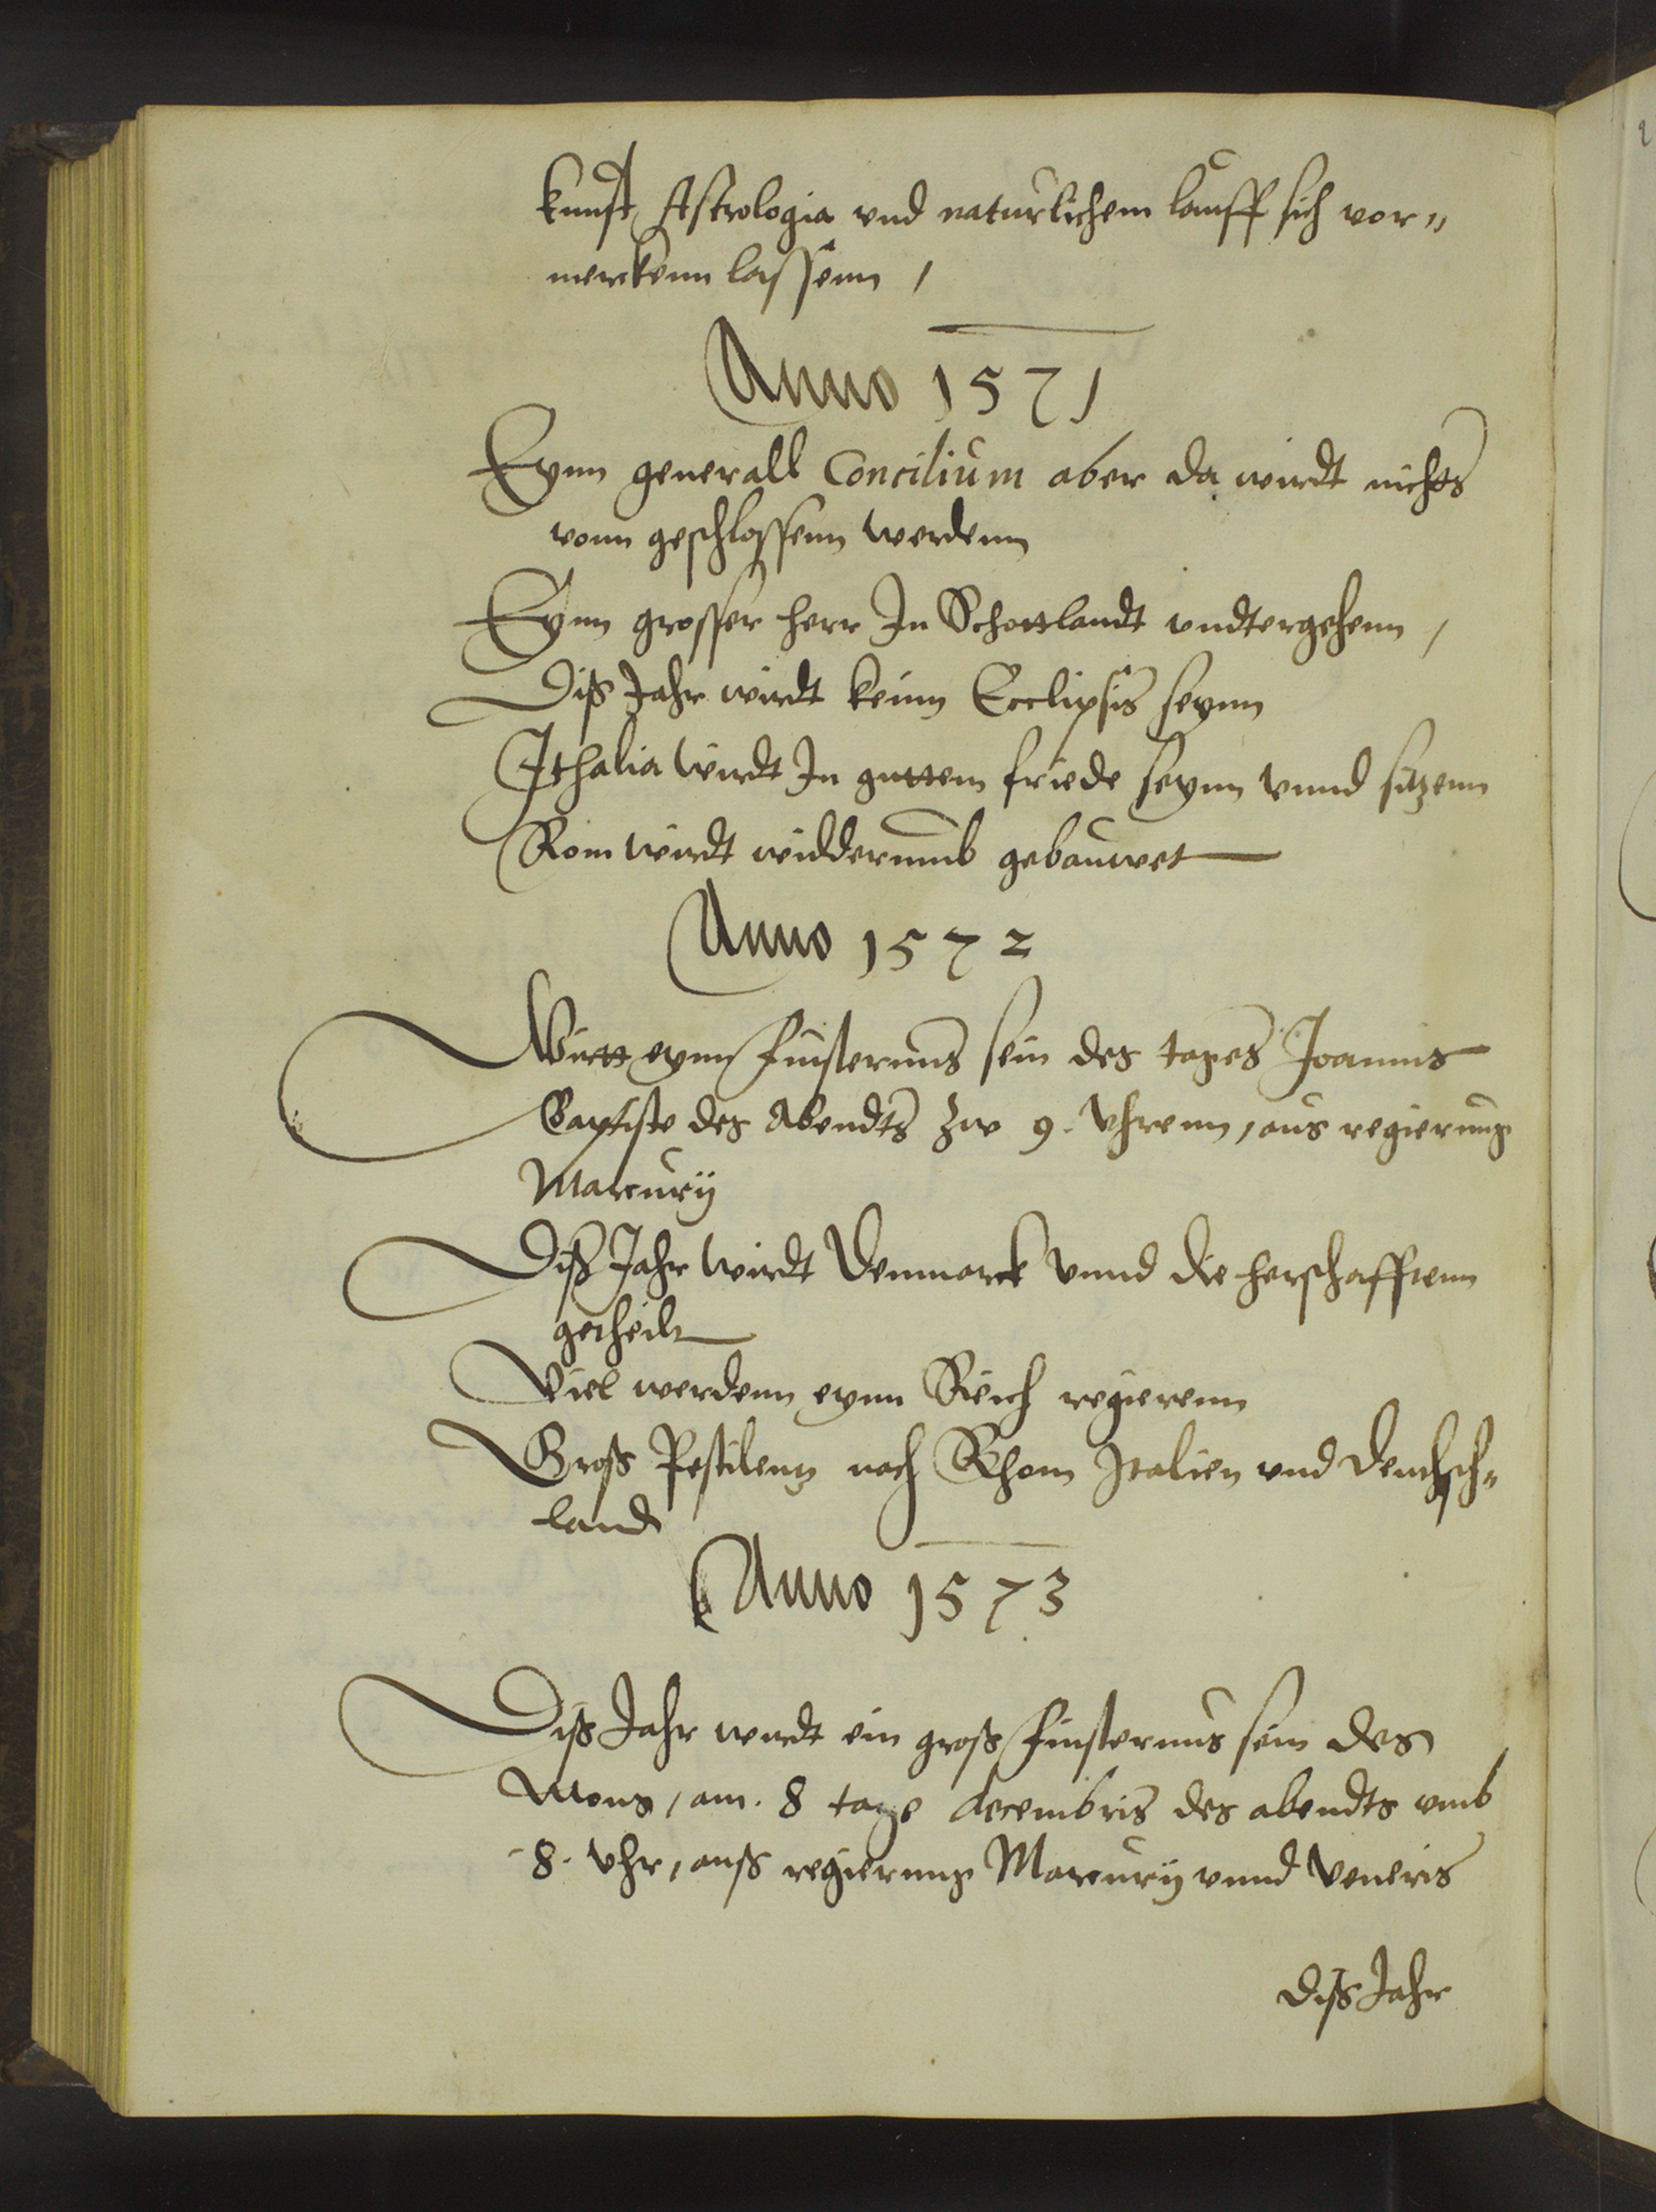 kunst Astrologia vnd naturlichem lauff sich vor„
merckenn lassenn /
Anno 1571
Eynn generall Concilium aber da wirdt nichts
vonn geschlossenn werdenn
Eynn grosser herr In Schottlandt vndtergehenn /
Diß Jahr wirdt keinn Ecclipsis seynn
Ithalia wirdt In guttem friede seynn vnnd sitzenn
Rom wirdt widderumb gebauwet
Anno 1572
Wirtt eynn finsternus sein des tages Joannis
Baptiste des Abendts zw 9. Vhrenn, aus regierung
Mercurij
Diß Jahr wirdt Denmarck vnnd die herschafftenn
getheilt
Viel werdenn eynn Reich regierenn
Groß Pestilentz nach Rhom Italien vnd Deudsch„
landt
Anno 1573
Diß Jahr wirdt ein groß finsternus sein des
Mons, am. 8 tage decembris des abendts vmb
8. Vhr, auß regierung Mercurij vnnd Veneris
Diß Jahr